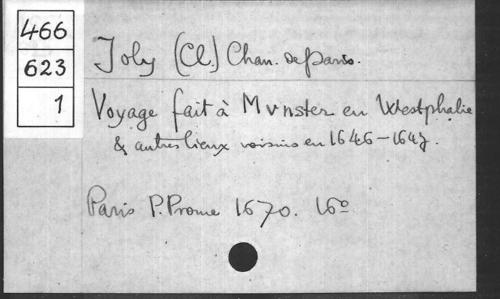 466
623
1
Joly (Cl.) Chan. de Paris.
Voyage fait à Mvnster en Westphalie
& autres lieux voisins en 1646-1647.
Paris P. Prome 1670. 16º